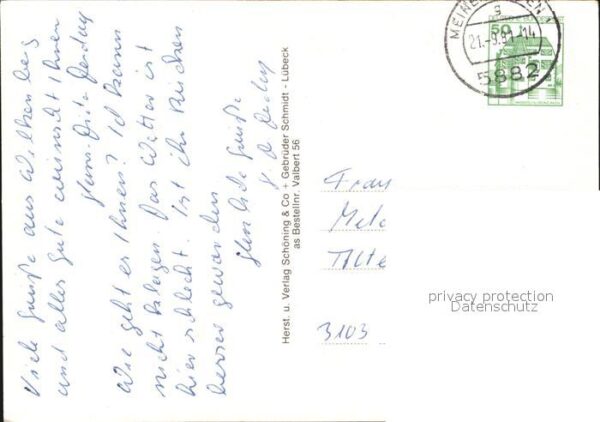 Viele Grüße aus Wiltenberg
und alles Gute wünscht Ihnen
Hans-Dieter
Wie geht es Ihnen? Ich kann
nicht klagen. Das Wetter ist
hier schlecht. Ist ihr Rücken
besser geworden
Herzliche Grüße
H. D.
Herst. u. Verlag Schöning & Co + Gebrüder Schmidt - Lübeck
as Bestellnr. Valbert 56
MEINERZHAGEN 1
s
21.-9.91-14
5882
50
Frau
Meta
Alte
3103
privacy protection
Datenschutz